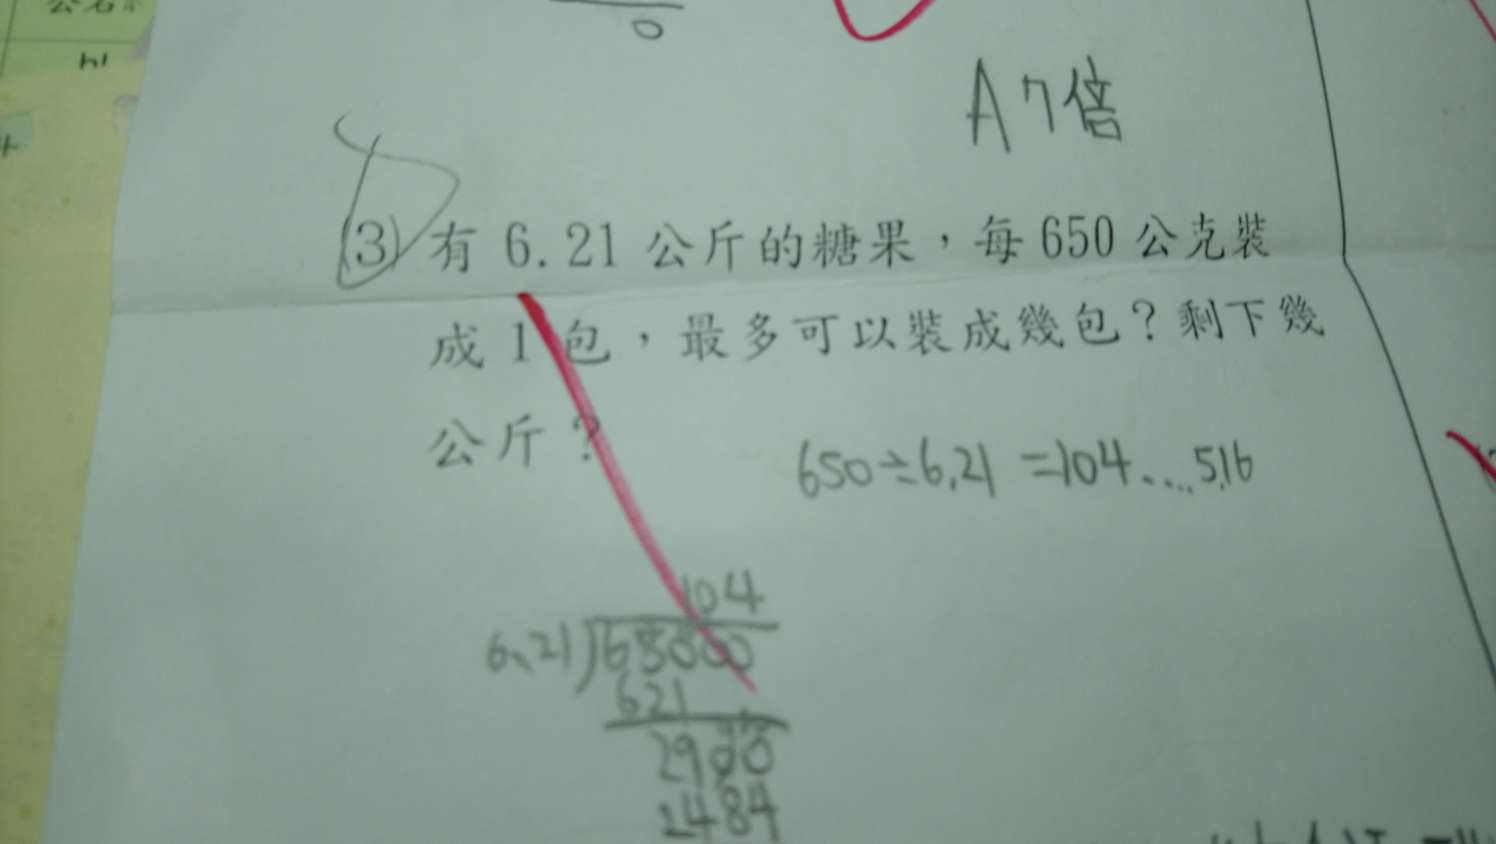 0
A 7倍
(3) 有 6.21 公斤的糖果，每 650 公克裝
成 1 包，最多可以裝成幾包？剩下幾
公斤？
650÷6.21=104....5.16
104
6.21)65000
621
2900
2484